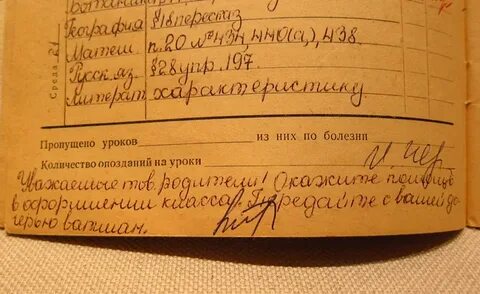 Ботаника
География §18 пересказ
Матем. п.20 № 434, 440(а), 438.
Русск. яз. §28 упр. 197.
Литерат характеристику
Среда
Пропущено уроков из них по болезни
Количество опозданий на уроки
Уважаемые тов. родители! Окажите помощь
в оформлении класса. Передайте с вашей до
черью ватман.